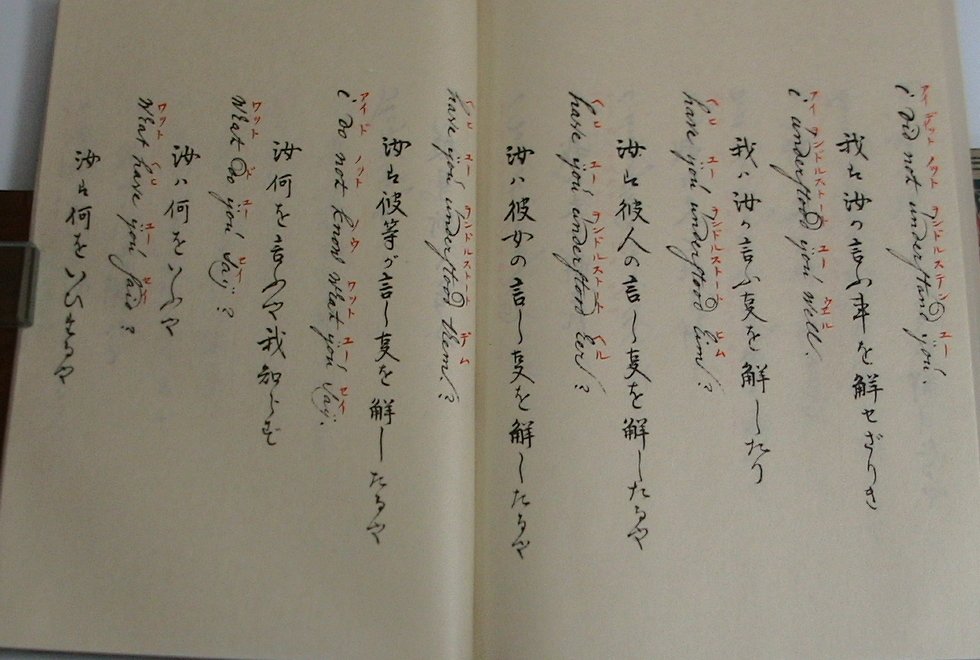 アイ ヂット ノット ヲンドルステン ユー
i Did not understand you.
我ハ汝の言ふ事を解せざりき
アイ ヲンドルストード ユー ウエル
i understood you well.
我ハ汝の言ふ叓を解したり
ユー ヲンドルストード ヒム
have you understood him?
汝ハ彼人の言し叓を解したるや
ユー ヲンドルストード ヘル
have you understood her?
汝ハ彼女の言し叓を解したるや
ユー ヲンドルストード デム
have you understood them?
汝ハ彼等が言し叓を解したるや
アイ ド ノット ノウ ワット ユー セイ
i Do not know what you say.
汝何を言ふや我知らず
ワット ド ユー セイ
What Do you say?
汝ハ何をいふや
ワット ユー セイ
What have you said?
汝ハ何をいひたるや